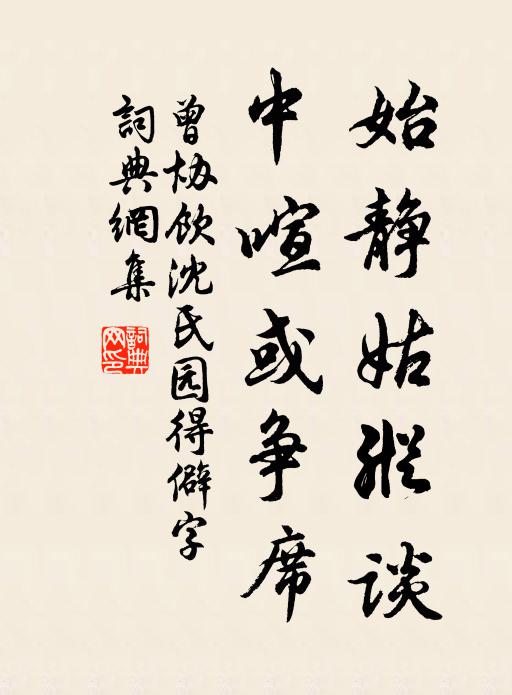 始静姑縱谈
中喧或争席
曾协饮沈民园得僻字
詞典網集
詞典
网印